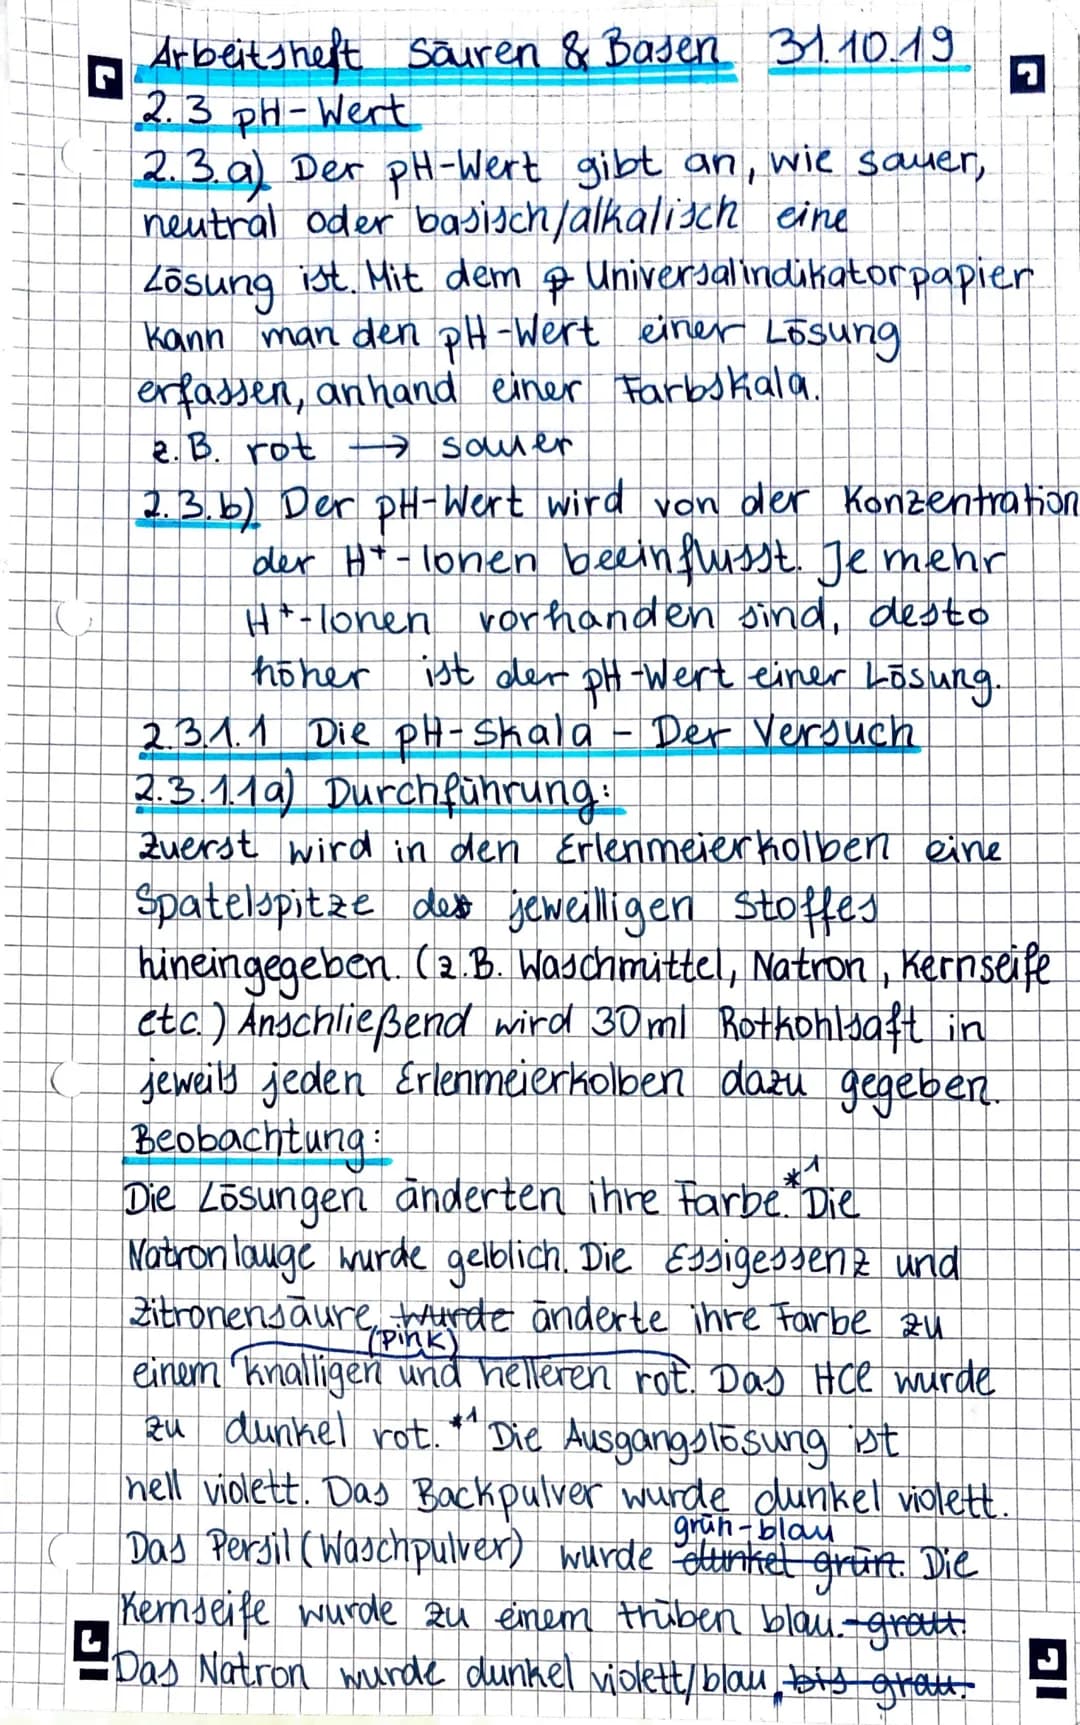 Arbeitsheft Säuren & Basen 31.10.19
2.3 pH-Wert
2.3.a) Der pH-Wert gibt an, wie sauer,
neutral oder basisch/alkalisch eine
Lösung ist. Mit dem Universalindikatorpapier
kann man den pH-Wert einer Lösung
erfassen, anhand einer Farbskala.
z.B. rot → sauer
2.3.b) Der pH-Wert wird von der Konzentration
der H⁺-Ionen beeinflusst. Je mehr
H⁺-Ionen vorhanden sind, desto
höher ist der pH-Wert einer Lösung.
2.3.1.1 Die pH-Skala - Der Versuch
2.3.1.1a) Durchführung:
Zuerst wird in den Erlenmeierkolben eine
Spatelspitze des jeweilligen Stoffes
hineingegeben. (z.B. Waschmittel, Natron, Kernseife
etc.) Anschließend wird 30ml Rotkohlsaft in
jeweils jeden Erlenmeierkolben dazu gegeben.
Beobachtung:
Die Lösungen änderten ihre Farbe.*1 Die
Natronlauge wurde gelblich. Die Essigessenz und
Zitronensäure, wurde änderte ihre Farbe zu
(pink)
einem knalligen und helleren rot. Das HCl wurde
zu dunkel rot. *1 Die Ausgangslösung ist
hell violett. Das Backpulver wurde dunkel violett.
grün-blau
Das Persil (Waschpulver) wurde dunkel grün. Die
Kernseife wurde zu einem trüben blau.-grau.
Das Natron wurde dunkel violett/blau, bis grau.